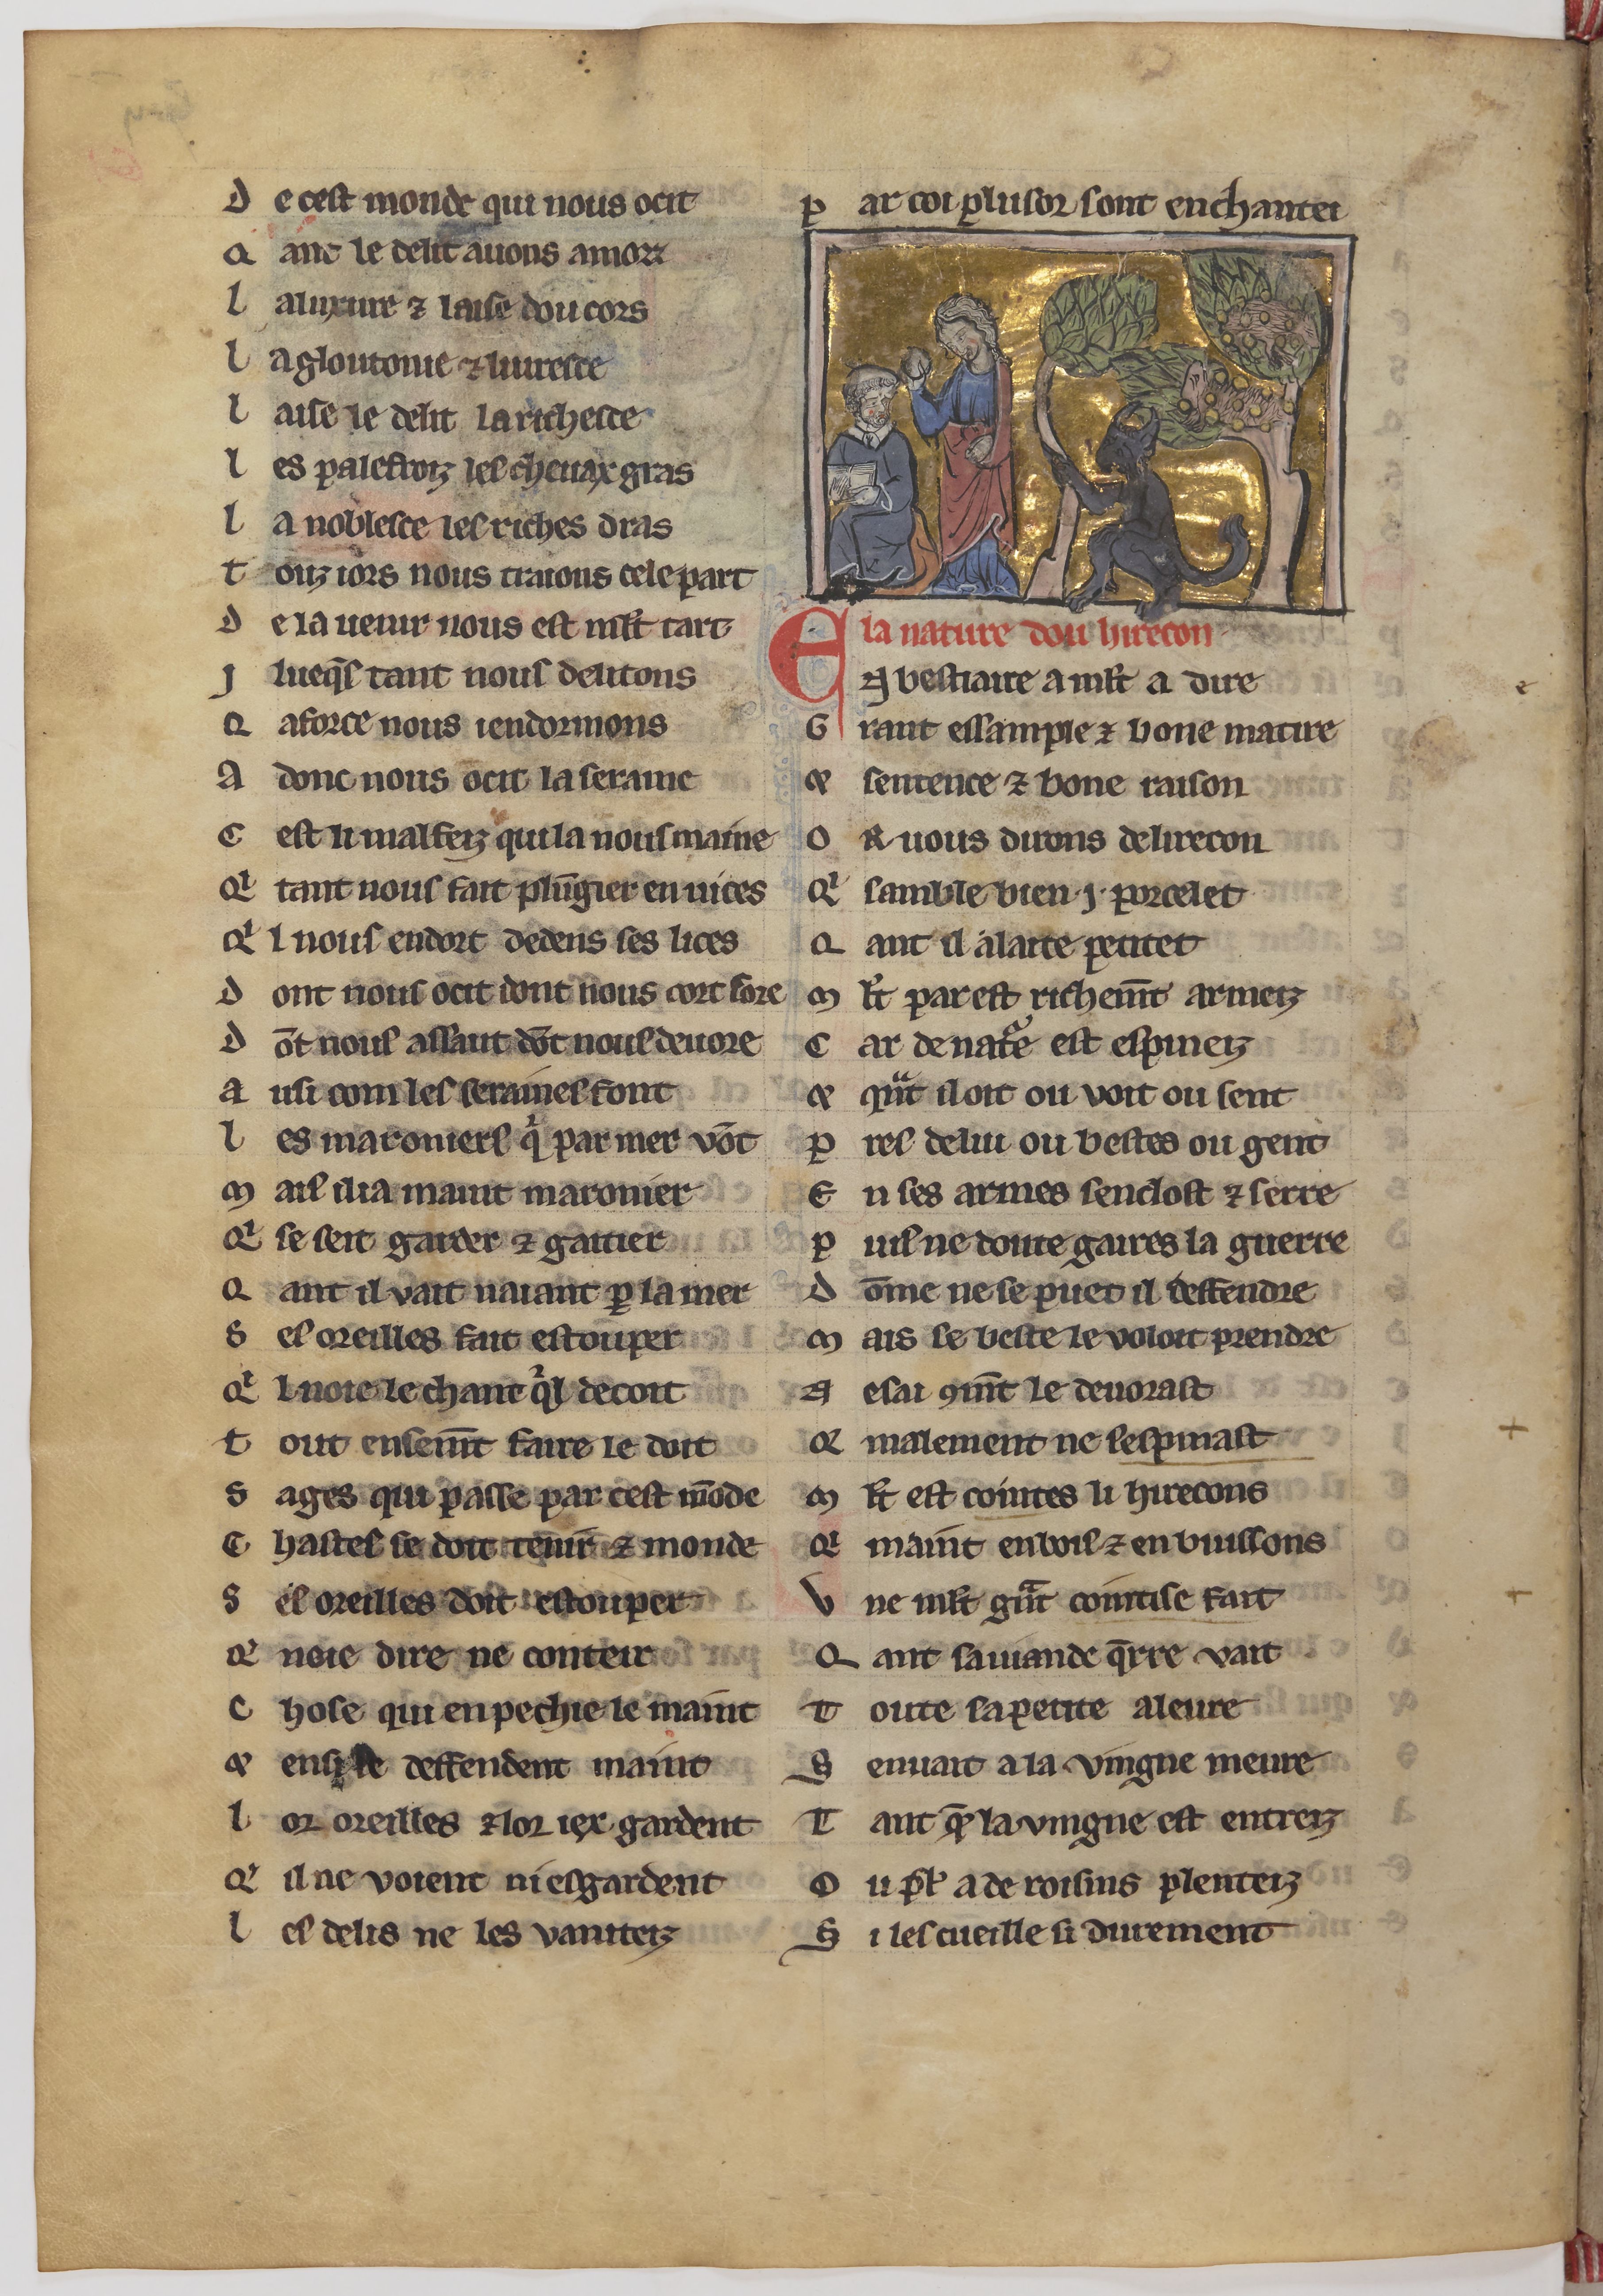 D e cest monde qui nous ocit
Q ant le delit auons amors
L a luxure ⁊ laise dou cors
L a gloutonie ⁊ liuresce
L aise le delit la richesce
L es palefroiz les cheuax gras
L a noblesce les riches dras
T ouz iors nous traions cele part
D e la uenir nous est ml̃t tart
J lueq̃s tant nous delitons
Q aforce nous iendormons
A donc nous ocit la seraine
C est li malfeiz qui la nous maine
Qͥ tant nous fait plũgier en uices
Qͥ l nous endort dedens ses lices
D ont nous ocit dont nous cort sore
D õt nous assaut dõt nous deuore
A usi com les seraines font
L es maroniers qͥ par mer võt
M ais il i a maint maronier
Qͥ se seit garder ⁊ gaitier
Q ant il vait naiant ꝑ la mer
S es oreilles fait estouper
Qͥ l noie le chant qͥl decoit
T out ensemẽt faire le doit
S ages qui passe par cest mõde
C hastes se doit tenir ⁊ monde
S es oreilles doit estouper
Qͥ noie dire ne conteir
C hose qui en pechie le maint
⁊ ensi se deffendent maint
L or oreilles ⁊ lor iex gardent
Qͥ il ne voient ni esgardent
L es delis ne les vaniteiz
P ar coi plusor sont enchantei
la nature dou hirecon
E Q bestiaire a ml̃t a dire
G rant essample ⁊ bone matire
⁊ sentence ⁊ bone raison
O R uous dirons de lirecon
Qͥ samble bien .j. porcelet
Q ant il alaite petitet
M l̃t par est richemẽt armeiz
C ar de natᷓe est espineiz
⁊ qᷓnt il oit ou voit ou sent
P res de lui ou bestes ou gent
E n ses armes senclost ⁊ serre
P uis ne doute gaires la guerre
D õme ne se puet il deffendre
M ais se beste le voloit prendre
A esai ꝯmẽt le deuorast
Q malement ne sespinast
M l̃t est cointes li hirecons
Qͥ maint en bois ⁊ en buissons
V ne ml̃t gᷓnt cointise fait
Q ant sa uiande q̃rre vait
T oute sa petite aleure
S en uait a la vingne meure
T ant q̃ la vingne est entreiz
O u pl᷒ a de roisins plenteiz
S i les cueille si durement